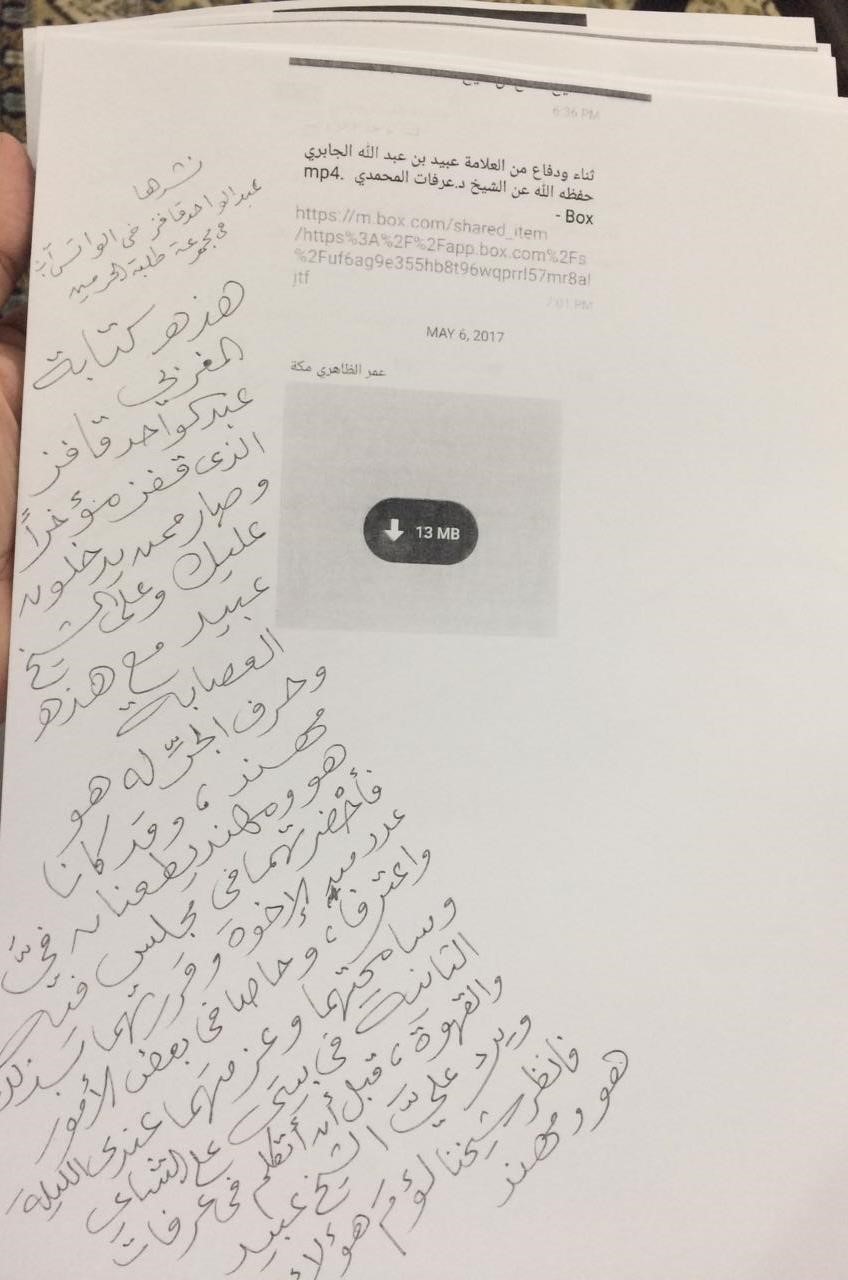 6:36 PM
ثناء ودفاع من العلامة عبيد بن عبد الله الجابري
حفظه الله عن الشيخ د.عرفات المحمدي .mp4
- Box
https://m.box.com/shared_item
/https%3A%2F%2Fapp.box.com%2Fs
%2Fuf6ag9e355hb8t96wqprrl57mr8al
jtf
7:01 PM
MAY 6, 2017
عمر الظاهري مكة
13 MB
نشرها
عبدالواحد قافز في الواتس آب
في مجموعة طلبة الحرمين
هذه كتابة
المغربي
عبدالواحد قافز
الذي قفز مؤخراً
وصار ممن يدخلون
عليك وعلى الشيخ
عبيد مع هذه
العصابة
وحرف الجرّ له هو
مهند، وقد كانا
هو ومهند يطعنان فيَّ
فأحضرتهما في مجلس فيه
عدد من الإخوة وقررتهما بذلك
واعترفا، وحاصا في بعض الأمور
وسامحتهما وعزمتهما عندي الليلة
الثانية في بيتي على الشاي
والقهوة، قبل أن أتكلم في عرفات
ويرد عليَّ الشيخ عبيد
فانظر شيخنا لؤم هؤلاء
هو ومهند